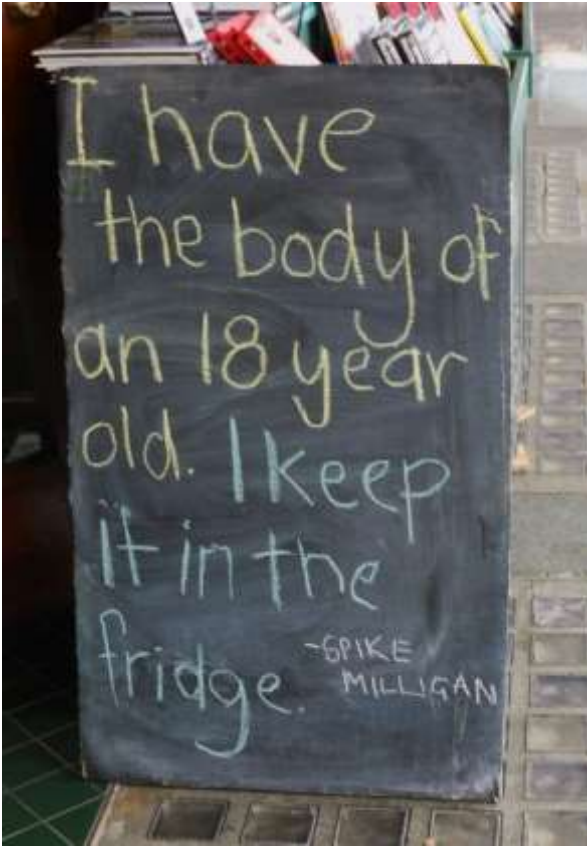 I have
the body of
an 18 year
old. I keep
it in the
fridge.
-SPIKE
MILLIGAN